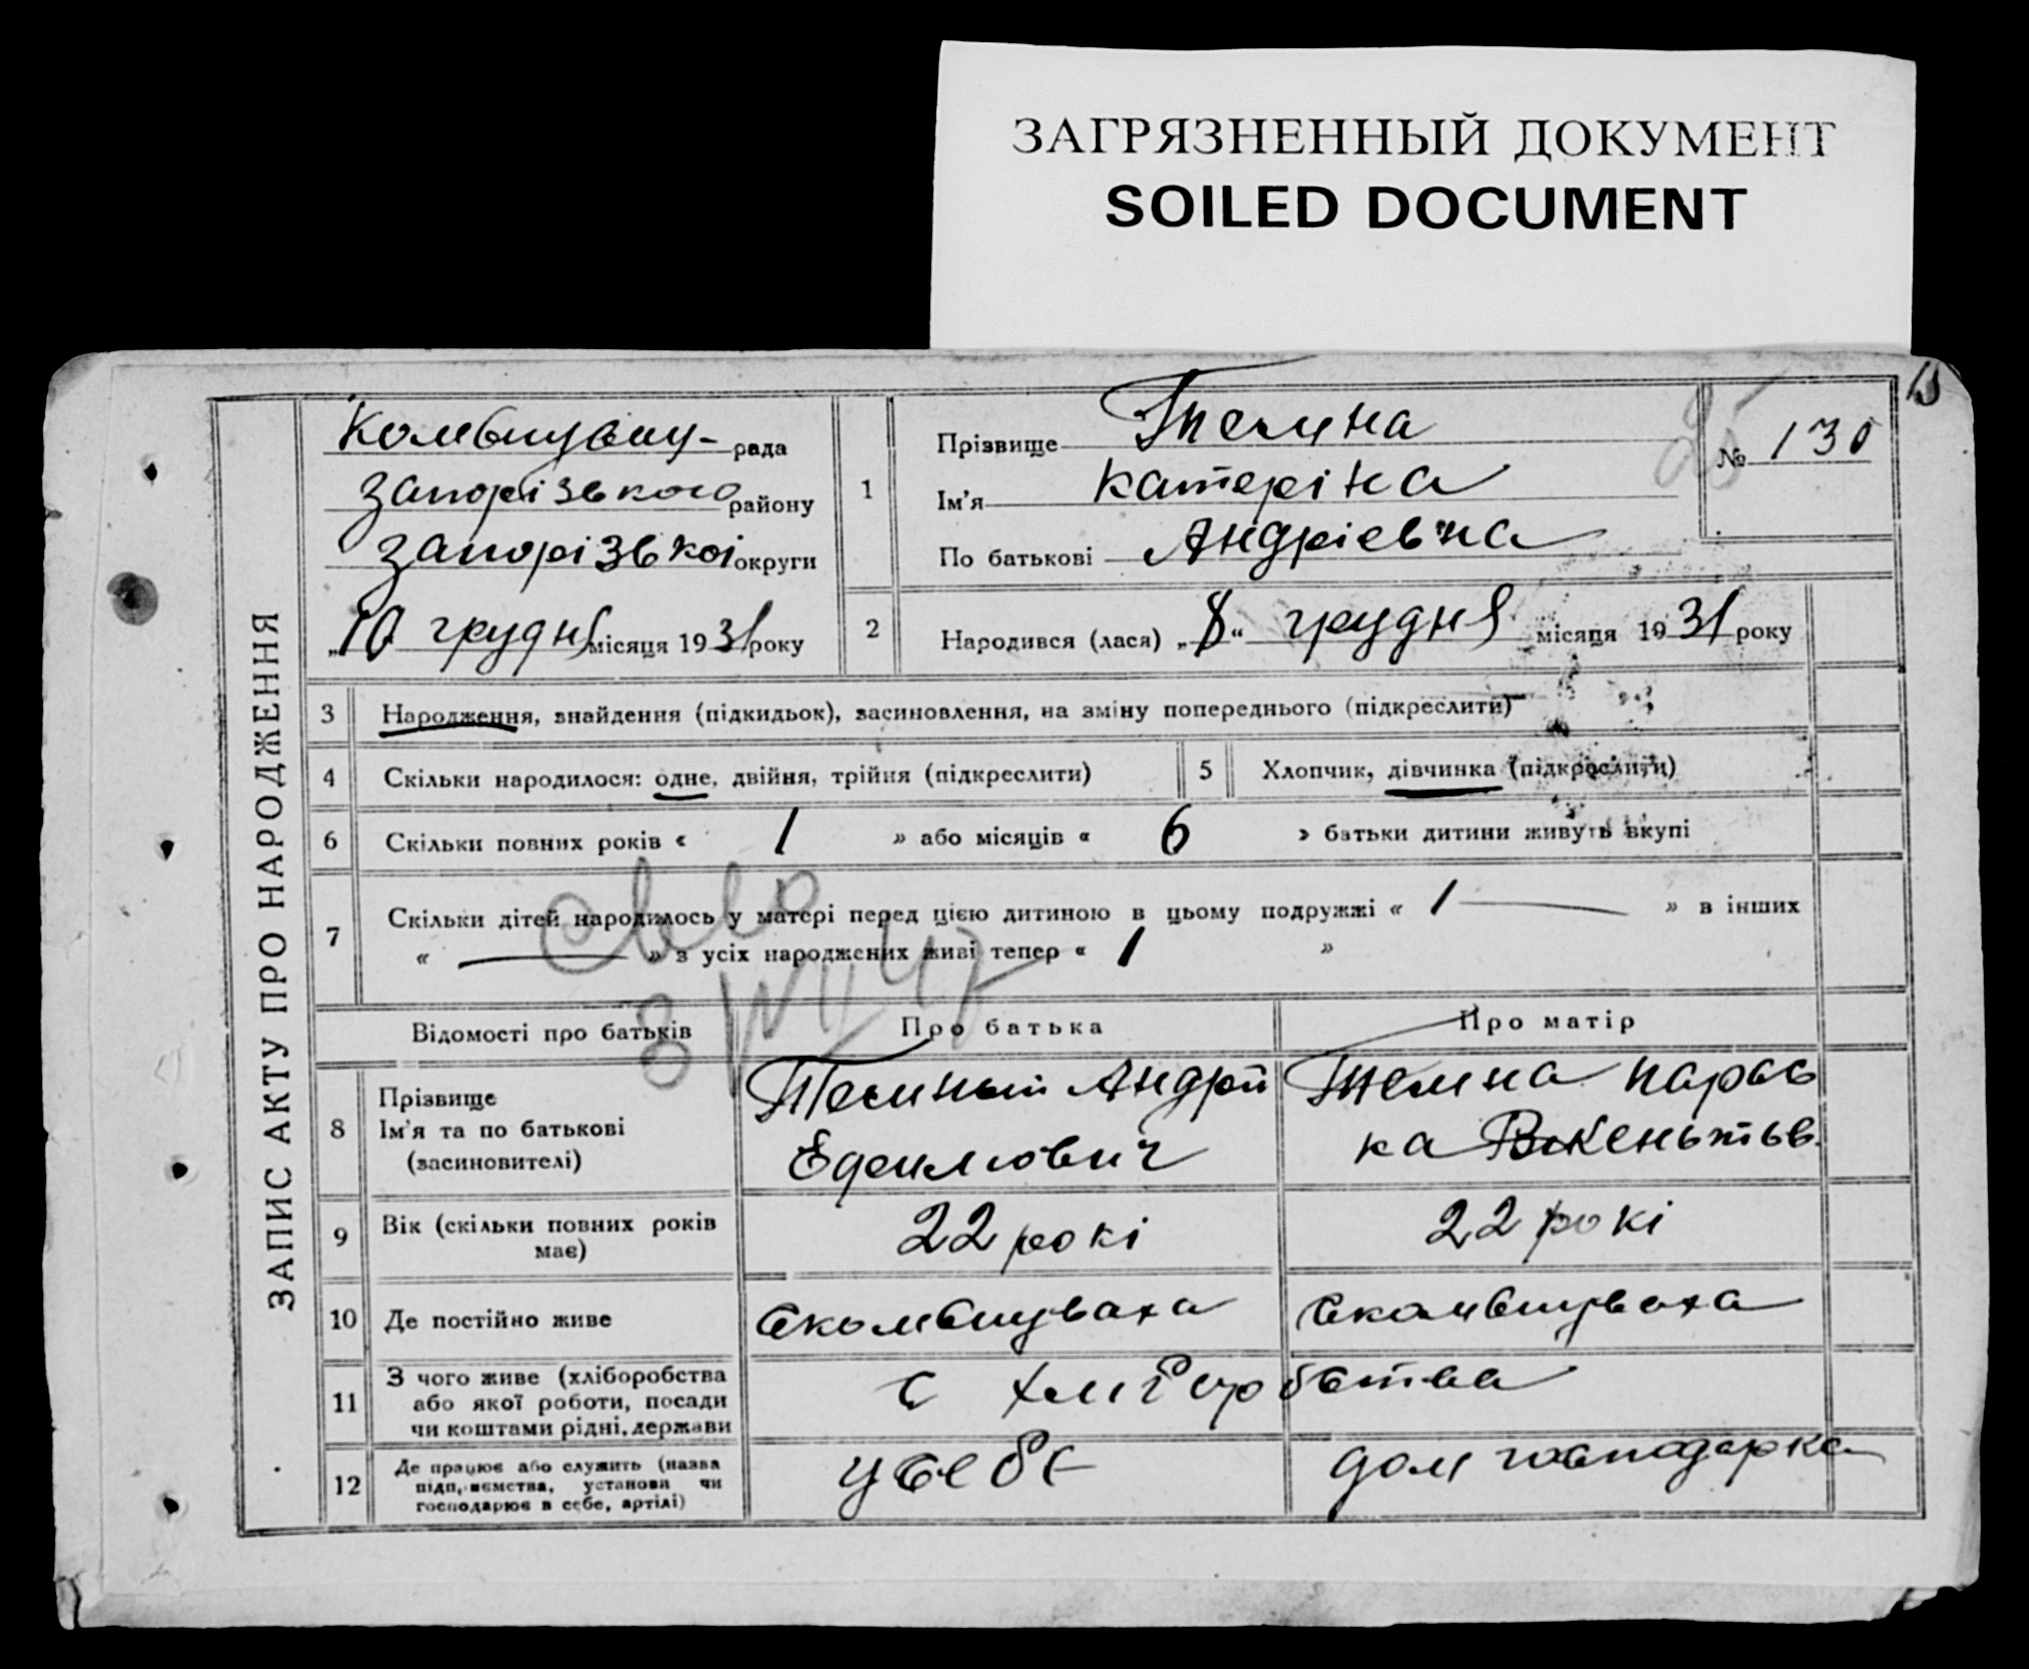 ЗАГРЯЗНЕННЫЙ ДОКУМЕНТ
SOILED DOCUMENT
15
ЗАПИС АКТУ ПРО НАРОДЖЕННЯ
Комвишував- рада
Запорізького району
Запорізькоі округи
„10 грудня місяця 1931 року
1
Прізвище Темина
Ім'я Катеріна
По батькові Андріевна
25
№ 130
2
Народився (лася) „8“ грудня місяця 1931 року
3 Народження, знайдення (підкидьок), засиновлення, на зміну попереднього (підкреслити)
4 Скільки народилося: одне, двійня, трійня (підкреслити)
5 Хлопчик, дівчинка (підкреслити)
6 Скільки повних років « 1 » або місяців « 6 » батьки дитини живуть вкупі
7 Скільки дітей народилось у матері перед цією дитиною в цьому подружжі « 1 » в інших
« — » з усіх народжених живі тепер « 1 »
Відомості про батьків Про батька Про матір
8 Прізвище
Ім'я та по батькові
(засиновителі)
Андрій
Темина Парас
ка
9 Вік (скільки повних років
має)
22 рокі
22 рокі
10 Де постійно живе
Скомвишуваха
Скомвишуваха
11 З чого живе (хліборобства
або якої роботи, посади
чи коштами рідні, держави
с хліборобства
12 Де працює або служить (назва
підп,риємства, установи чи
господарює в себе, артілі)
у себе
дом господарка